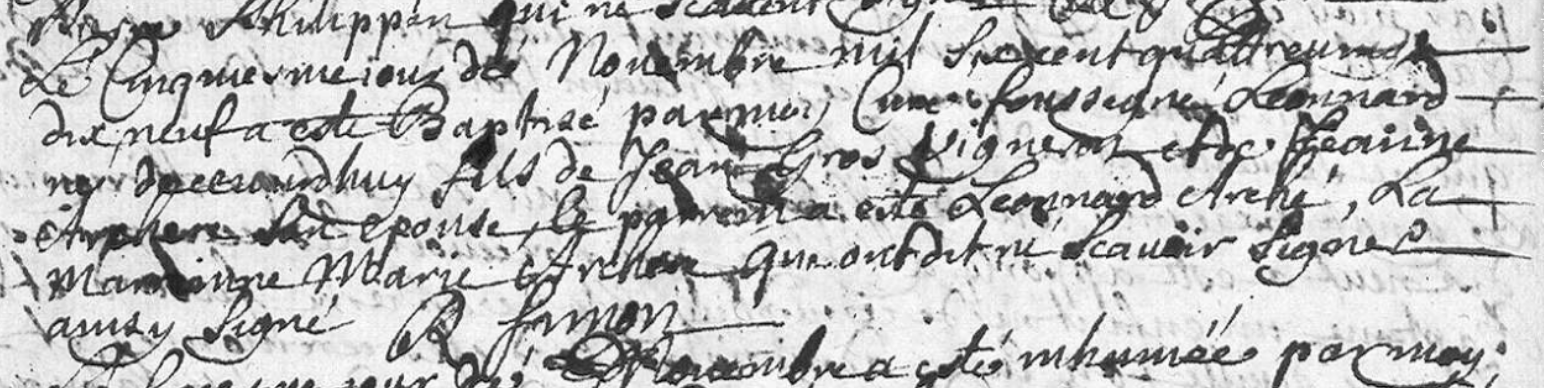 Philippon qui ne scavent
Le Cinquiesme iour de Novembre mil six cent quattreuingt
dix neuf a esté Baptisé par moy Curé soussigné Leonnard
né daujourdhuy fils de Jean Gros Vigneron et de Jeanne
Archere son epouse, le parrein a esté Leonnard Arché, La
Marrainne Marie Archere qui ont dit ne Scavoir Signer
ainsy Signé
jour de Novembre a esté inhumée par moy